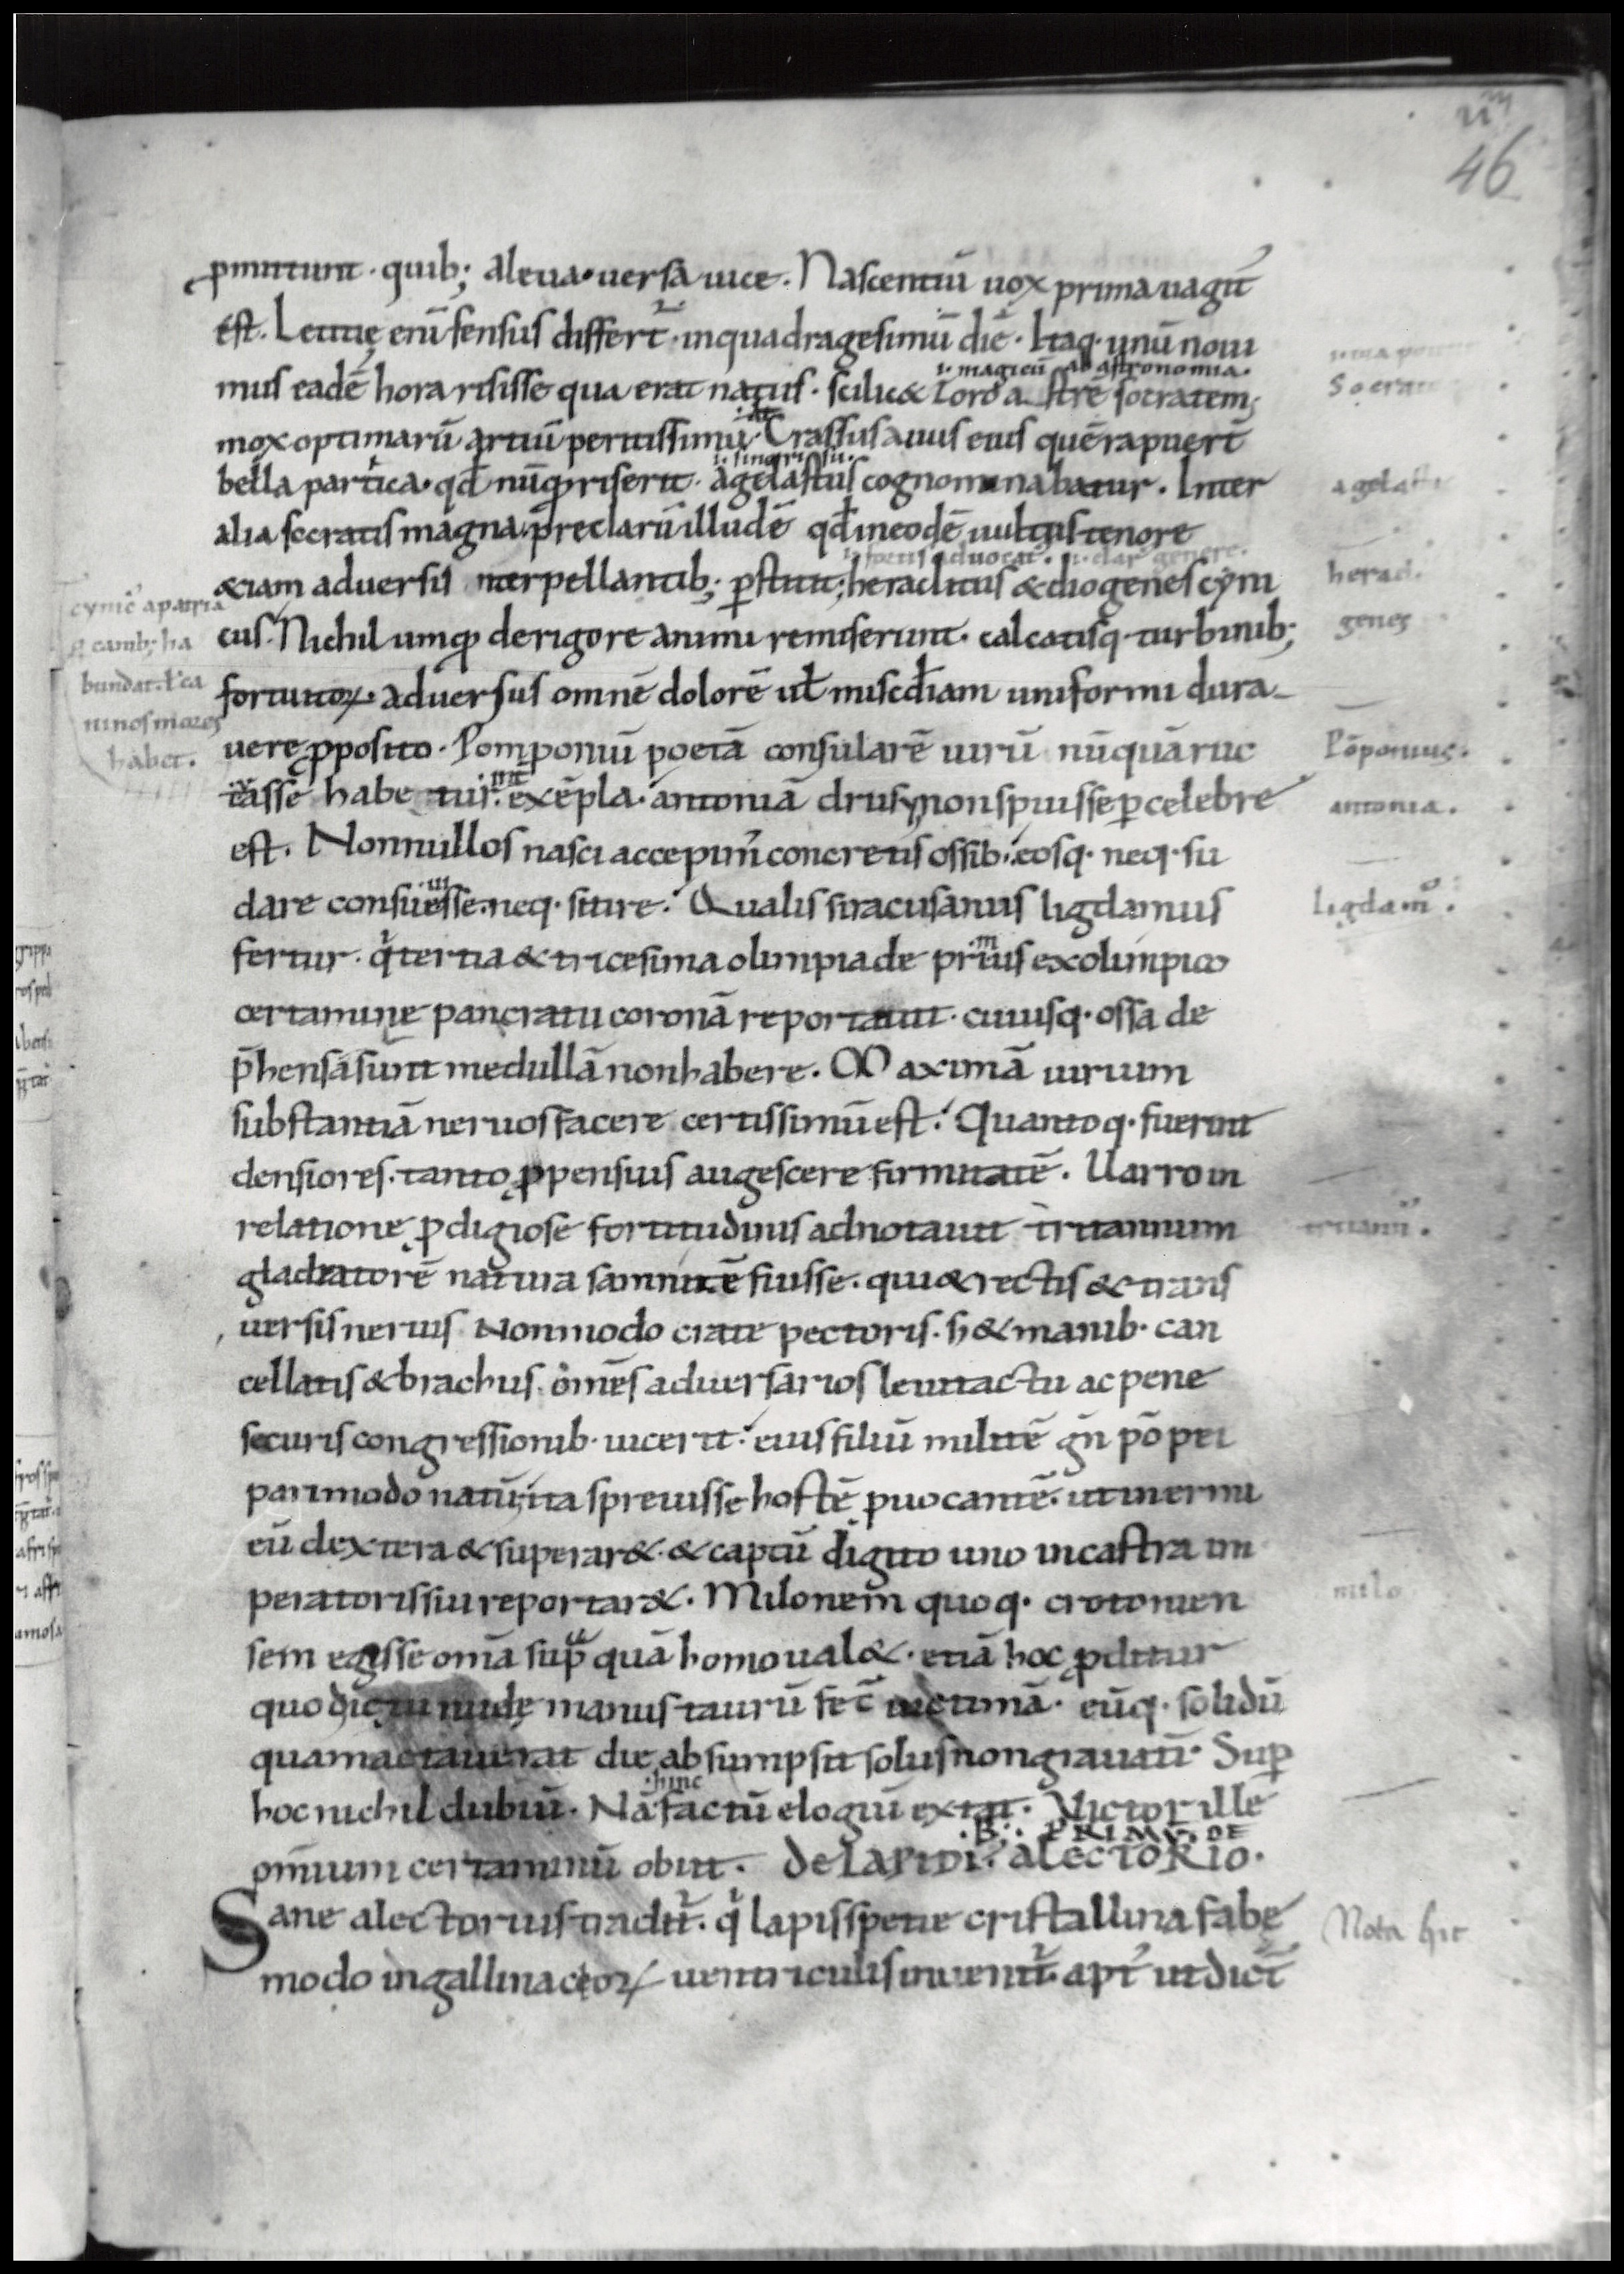 46
ꝓmittunt · quib; a leua · uersa uice . Nascentiū uox prima uagit᷒
est . Letitię enī sensus differt᷑ · in quadragesimū diē · Itaq · unū noui
mus eadē hora risisse qua erat natus · scilic& zoroastrē socratem;
mox optimarū artiū peritissimū · Crassus auus eius quē rapuer̄t
bella partica · qd̄ nūq̄ riserit · agelastus cognominabatur . Inter
alia socratis magna p̄reclarū illud ē qd̄ in eodē uultus tenore
&iam adversis interpellantib; ꝑstitit; heraclitus & diogenes cyni
cus · Nichil umq̄ de rigore animi remiserunt · calcatisq · turbinib;
fortuitoꝝ · adversus omnē dolorē ul̄ misc̄diam uniformi dura-
uere ꝓposito · Pomponiū poetā consularē uirū nūquā ruc
tasse habetur int̄ exēpla · antoniā drusi non spuisse ꝑcelebre
est . Nonnullos nasci accepim᷒ concretis ossib; eosq · neq · su
dare consuesse neq · sitire · Qualis siracusanus ligdamus
fertur · q̇ tertia & tricesima olimpiade primus ex olimpico
certamine pancratii coronā reportauit · cuiusq · ossa de
p̄hensa sunt medullā non habere . Maximā uirium
substantiā neruos facere certissimū est · Quantoq · fuerint
densiores · tanto ꝓpensius augescere firmitatē . Uarro in
relatione ꝓdigiose fortitudinis adnotauit tritannum
gladiatorē natura samnitē fuisse · qui & rectis & trans
uersis neruis Non modo crate pectoris · s; & manib · can
cellatis & brachiis · om̄es adversarios leui tactu ac pene
securis congressionib · uicerit · eius filiū militē gn̄ pōpei
pari modo natū, ita spreuisse hostē ꝓuocantē · ut inermi
eū dextera & superar& · & captū digito uno in castra im
peratoris sui reportar& . Milonem quoq · crotonien
sem egisse om̄a sup̄ quā homo ual& · etiā hoc ꝓditur
quod ictu nudę manus taurū fec̄ uictimā · eūq · solidū
qua mactauerat die absumpsit solus non grauati᷒ · Sup
hoc nichil dubiū · Nā hinc factū elogiū extat · Victor ille
om̄ium certaminū obiit · de LAPIDI. aLECTORIO ·
Sane alectorius tradit᷑ · q̇ lapis spetie cristallina fabę
modo in gallinaceoꝝ uentriculis inuenit᷑ · apt᷒ ut dic̄t
cynic᷒ a patria
habet .
agelast
herad.
genes
Pōponius .
antonia .
ligdam᷒ .
milo
Nota hic